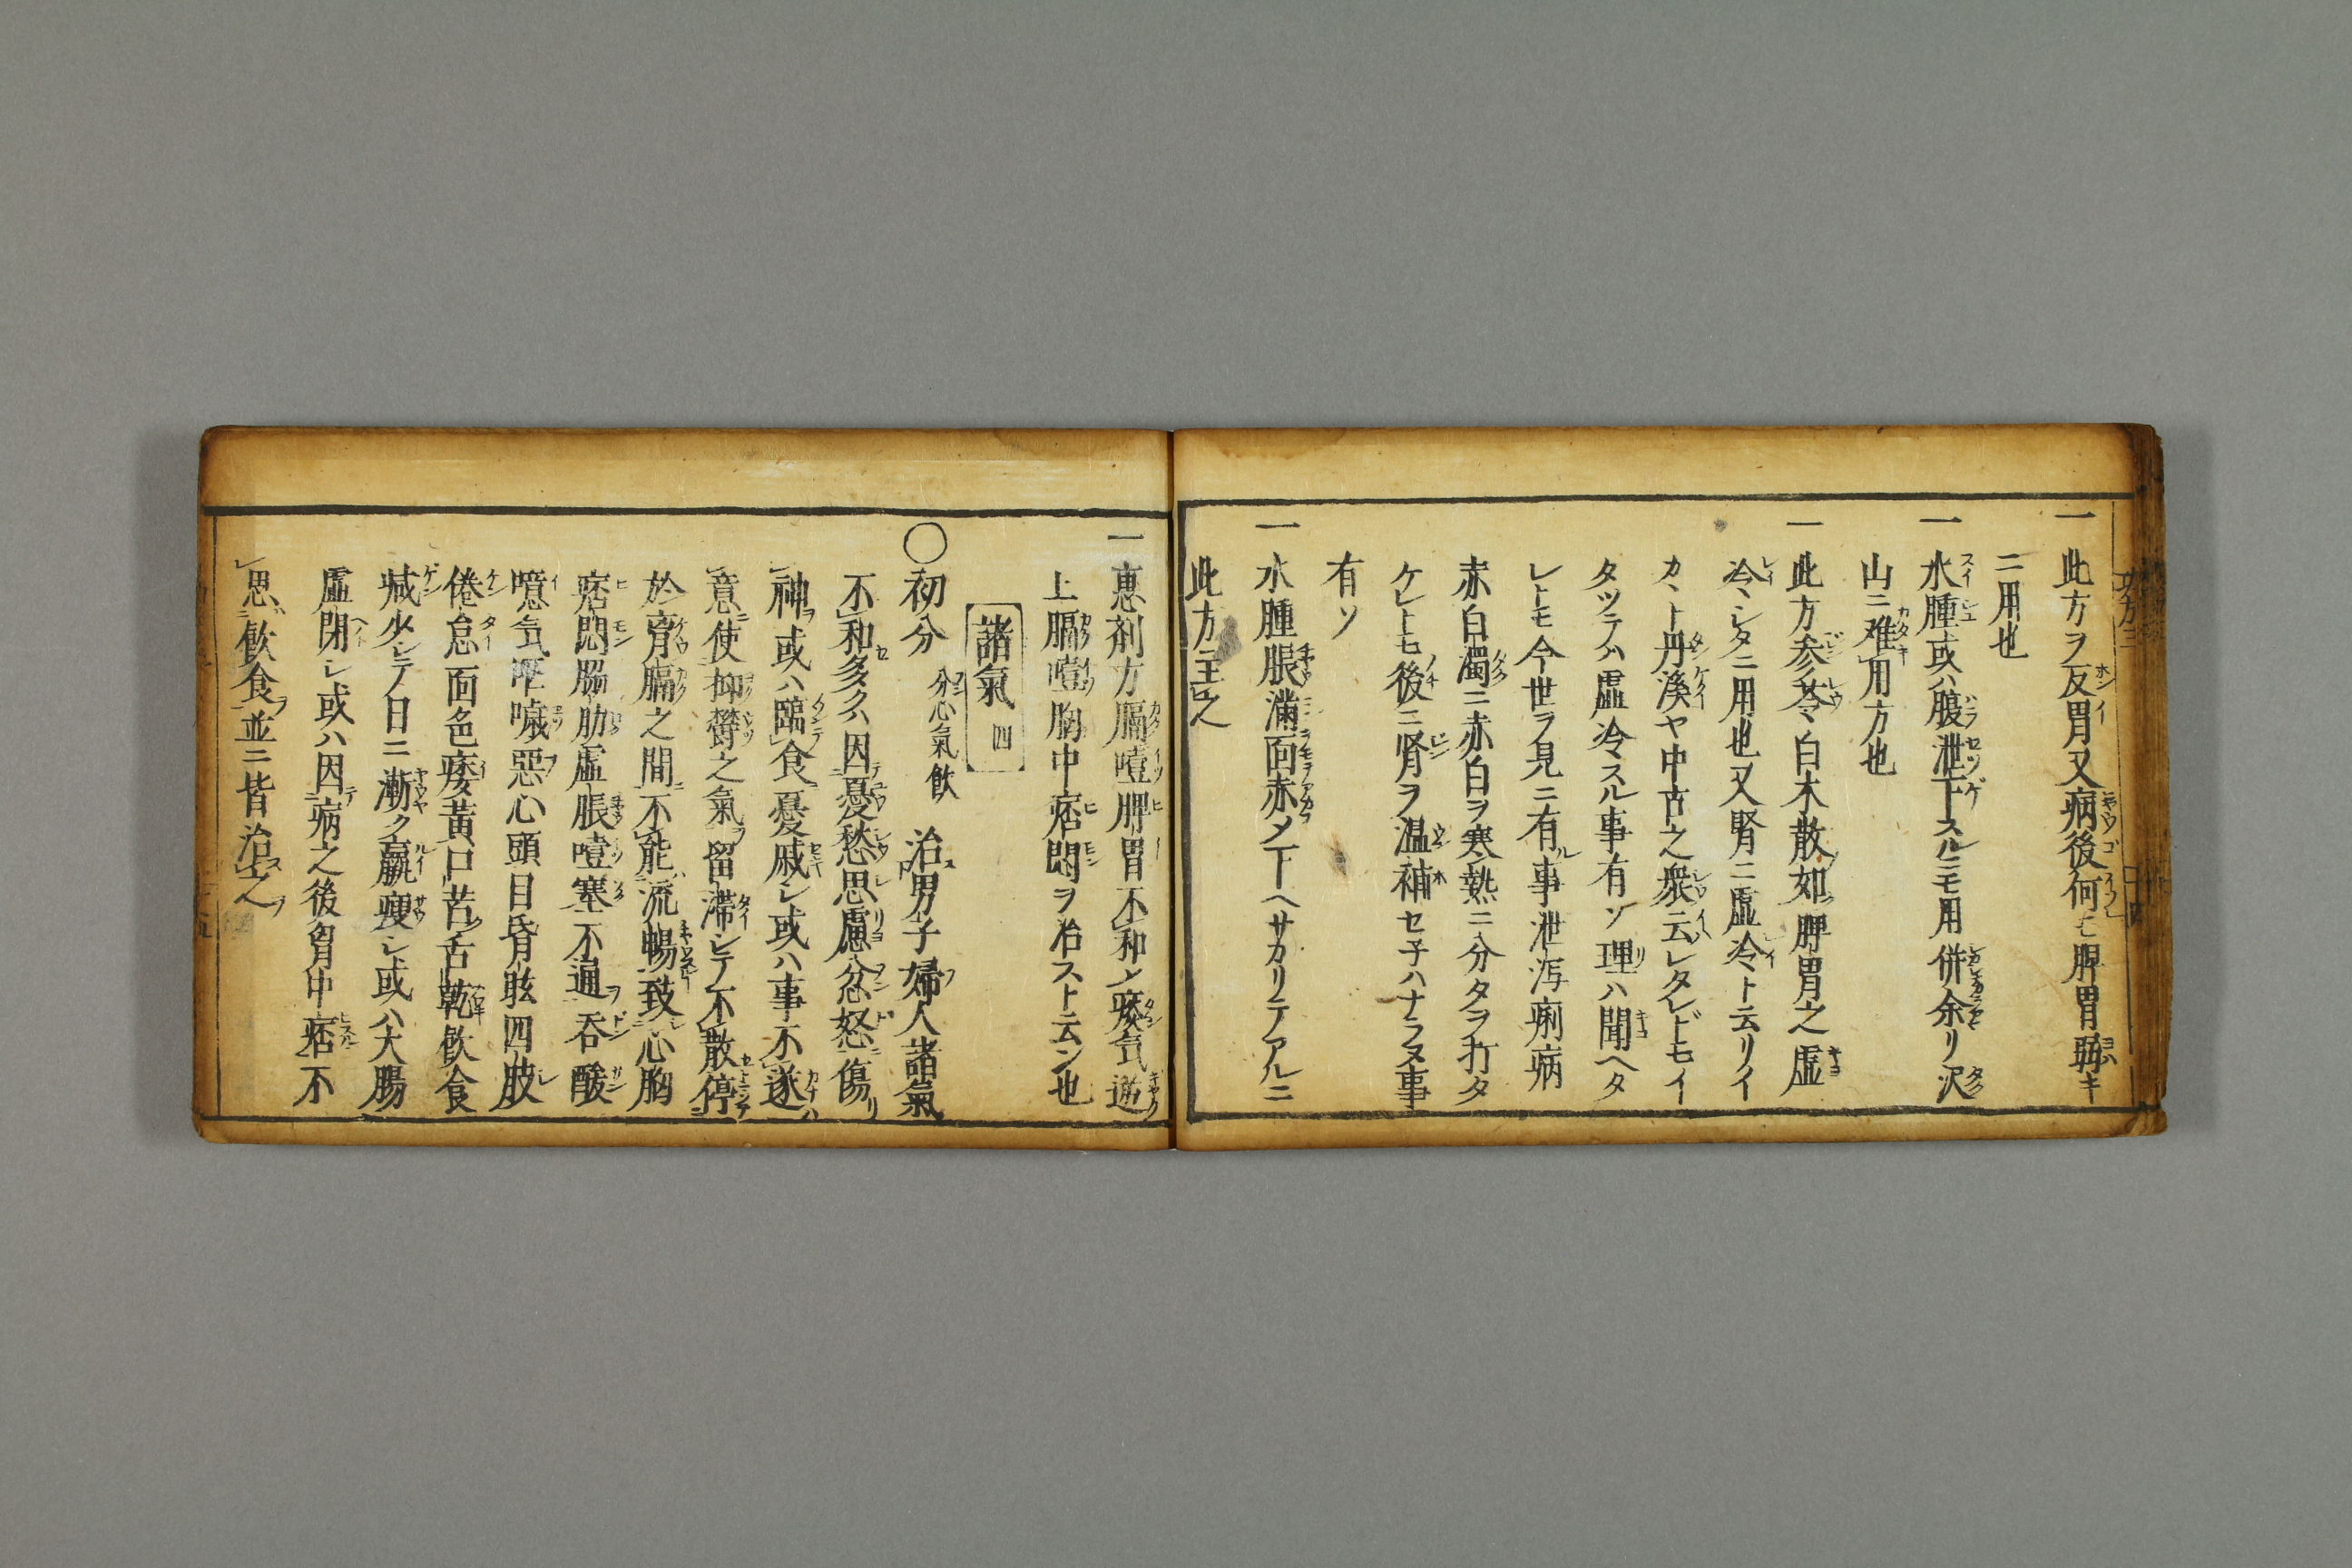 一 此方ヲ反胃又病後何モ脾胃弱キ
ニ用也
一 水腫或ハ腹泄下スルニモ用併余リ沢
山ニ难用方也
一 此方参苓白木散如脾胃之虚
冷シタニ用也又腎ニ虚冷ト云リイ
カヽト丹溪ヤ中古之衆云レタレドモイ
タツテハ虚冷スル事有ソ理ハ聞ヘタ
レトモ今世ヲ見ニ有ル事泄泻痢病
赤白濁ニ赤白ヲ寒熱ニ分タヲ打タ
ケレトモ後ニ肾ヲ温補セ子ハナラヌ事
有ソ
一 水腫脹滿面赤メ下ヘサカリテアルニ
此方主之
一 恵剤方膈噎脾胃不和メ痰気逆
上膈噎胸中痞悶ヲ治スト云ン也
諸氣 四
〇初分 分心氣飲 治男子婦人諸氣
不和多クハ因憂愁思慮忿怒傷リ
神ヲ或ハ臨食憂戚シ或ハ事不遂
意使抑欝之氣ヲ留滞シテ不散停
於胷膈之間不能流暢致心胸
痞悶脇肋虚脹噎塞不通吞酸
噫気嘔噦惡心頭目昏眩四肢
倦怠面色痿黃口苦舌乾飲食
减少シテ日ニ漸ク羸瘦シ或ハ大腸
虛閉シ或ハ因病之後胷中痞不
思飲食ヲ並ニ皆治之